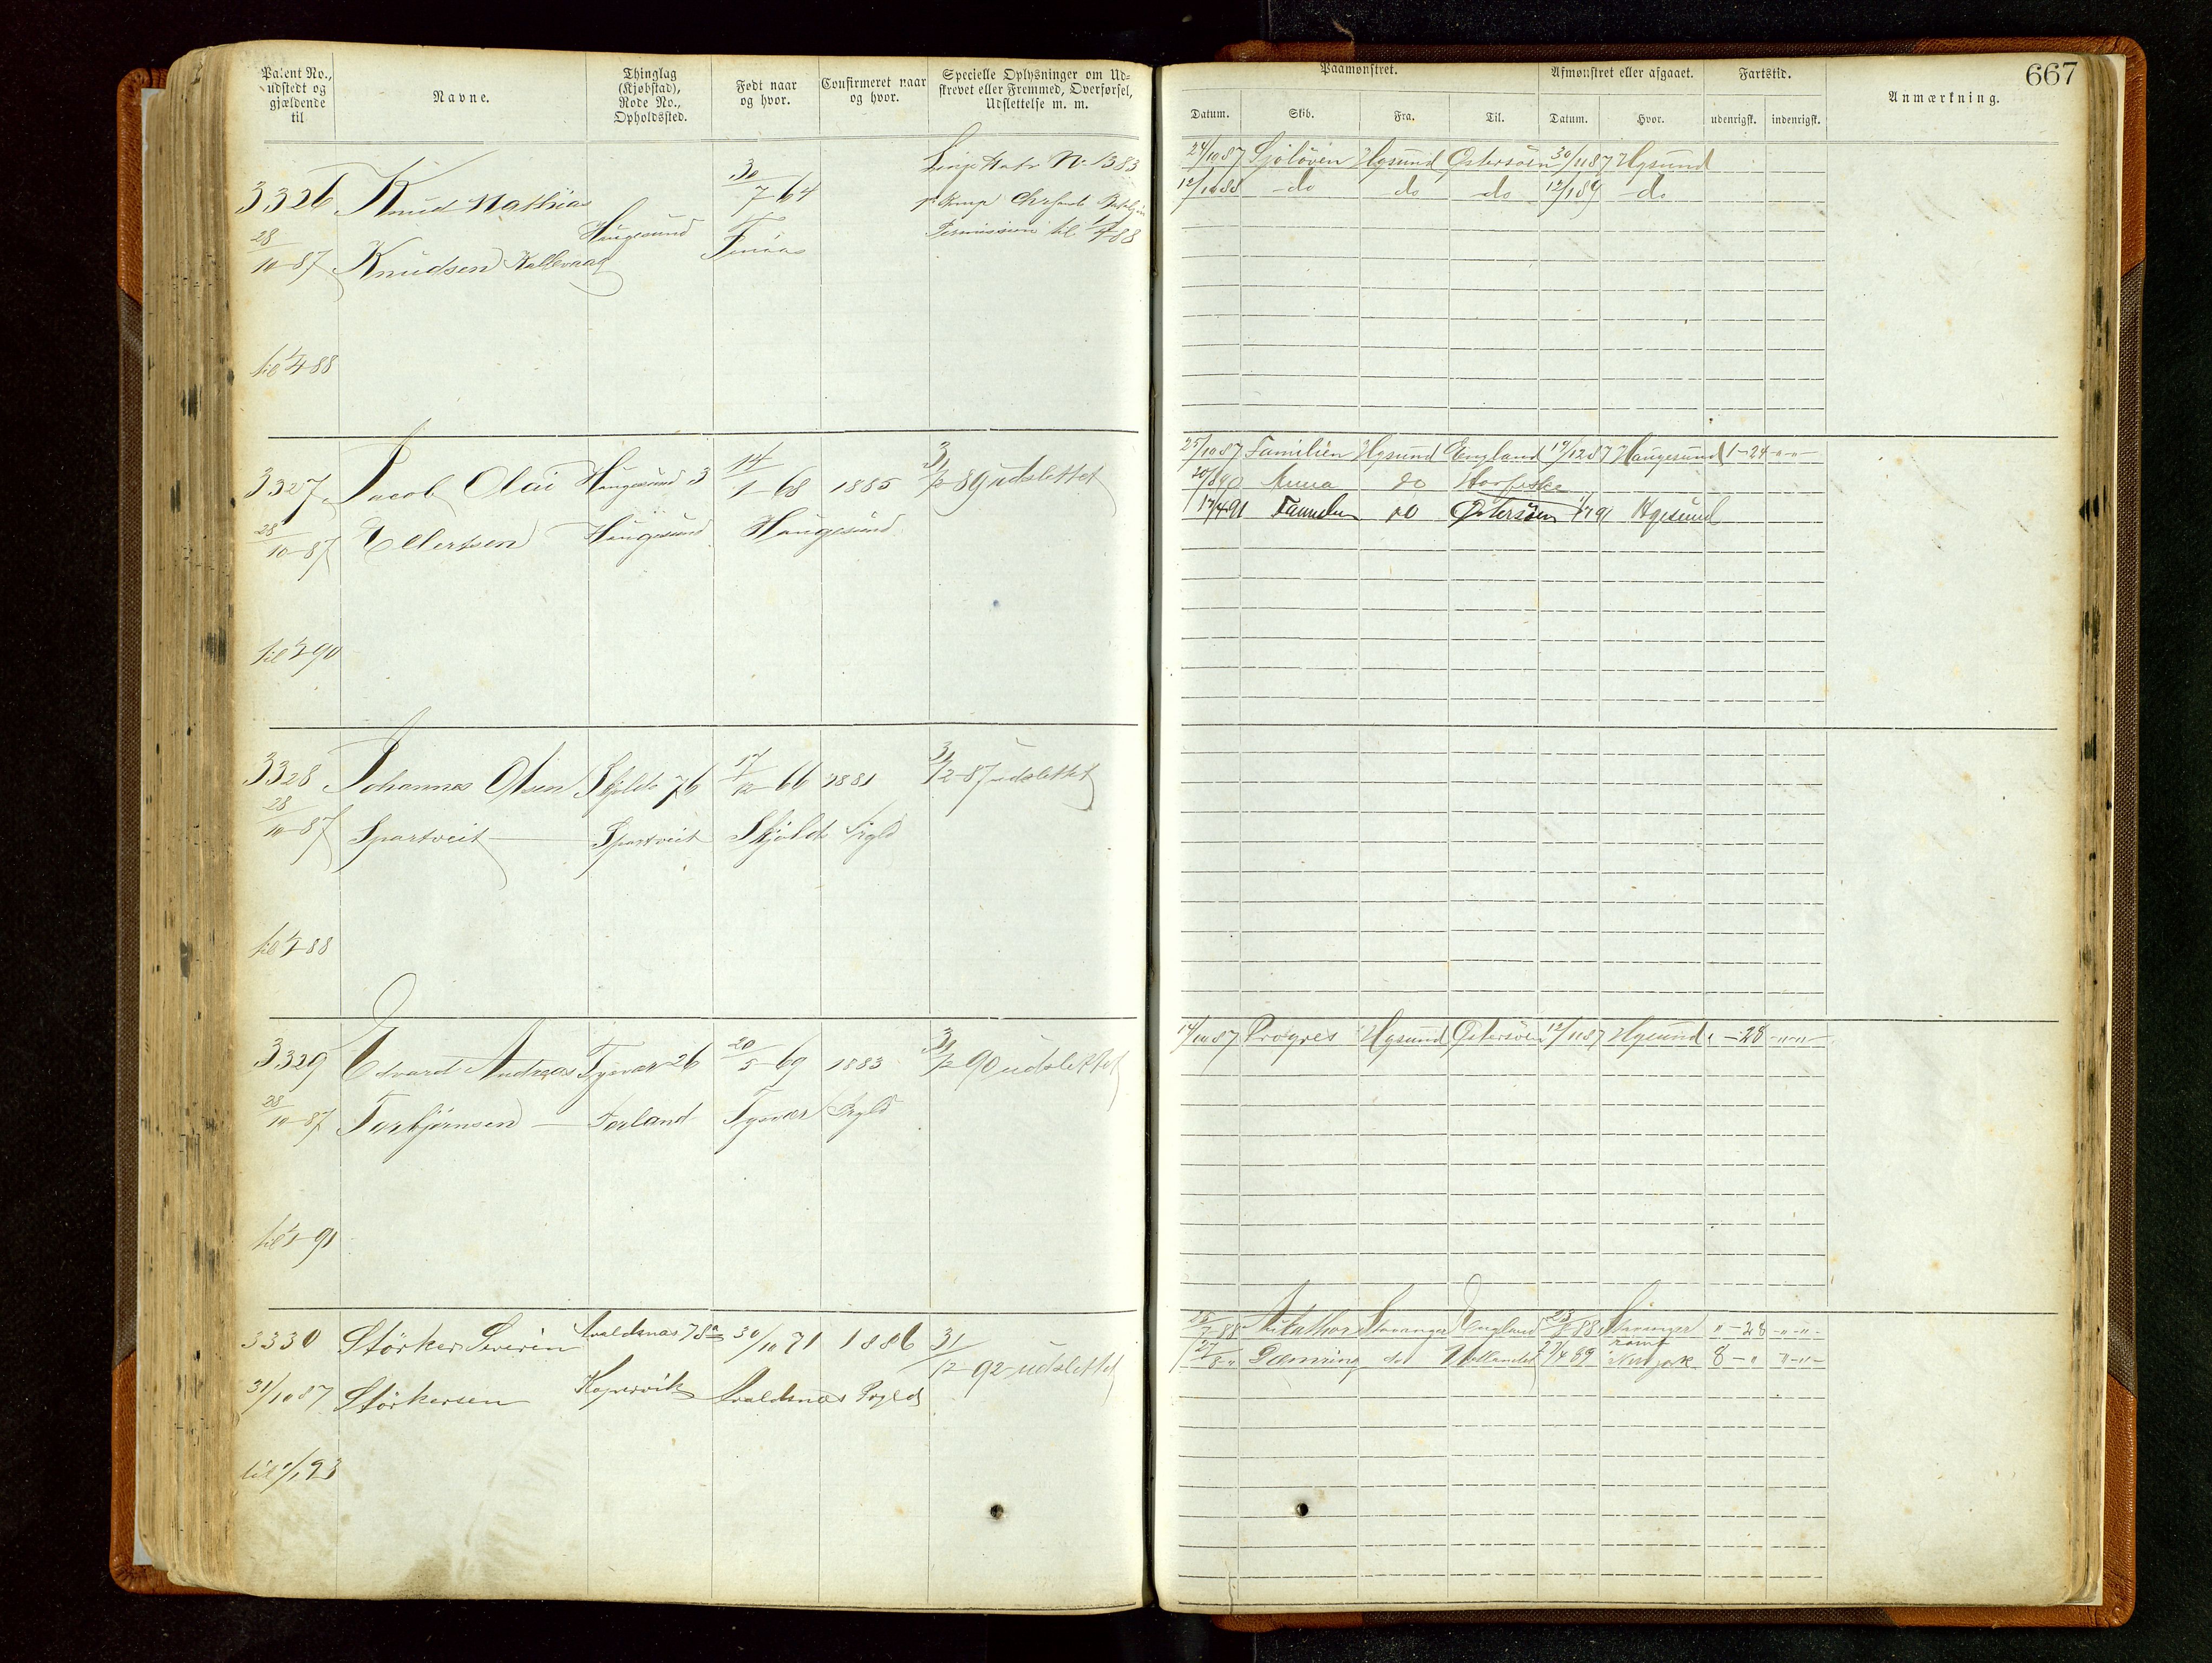 Patent No.,
udstedt og
gjældende
til
Navne.
Thinglag
(Kjøbstad),
Rode No.,
Opholdssted.
Født naar
og hvor.
Confirmeret naar
og hvor.
Specielle Oplysninger om Ud-
skrevet eller Fremmed, Overførsel,
Udslettelse m. m.
Paamønstret.
Afmønstret eller afgaaet.
Fartstid.
Anmærkning.
667
Datum.
Skib.
Fra.
Til.
Datum.
Hvor.
udenrigsk.
indenrigsk.
3326 Knud Mathias 30/7 64 No 1383
Haugesund
28/10-87 Knudsen Kallevaag
Permission til 1/4 88
til 1/4 88
24/10 87 Sjöløven Hgsund Østersöen 30/11 87 Hgsund
12/10 88 - do do do 12/1 89 - do
3327 Jacob Olai Haugesund 3 14/1-68 1885 31/12 89 udslettet
28/10-87 Ellertsen Haugesund Haugesund
til 1/1 90
25/10 87 Familien Hgsund England 19/12 87 Haugesund 1-24 -"-"-
20/8 90 Anna do
17/4 91 Familien do Østersöen Hgesund
3328 Johannes Olsen Skjold 76 17/12-66 1881 31/12-87 udslettet
28/10-87 Spartveit Spartveit Skjold Prgld
til 1/1 88
3329 Edvard Andreas Tysvær 26 20/5-69 1883 31/12 90 udslettet
28/10-87 Torbjørnsen Førland Tysvær Prgld
til 1/1 91
14/10 87 Progres Hgsund Østersöen 12/11 87 Hgsund " -28 -"-"-
3330 Störker Severin Avaldsnæs 78a 30/10 71 1886 31/12 92 udslettet
31/10 87 Störkersen Kopervik Avaldsnæs Prgld
til 1/1 93
Stavanger England Stavanger " -28 -"-"-
27/8 " Dæmring do 8 - " "-"-